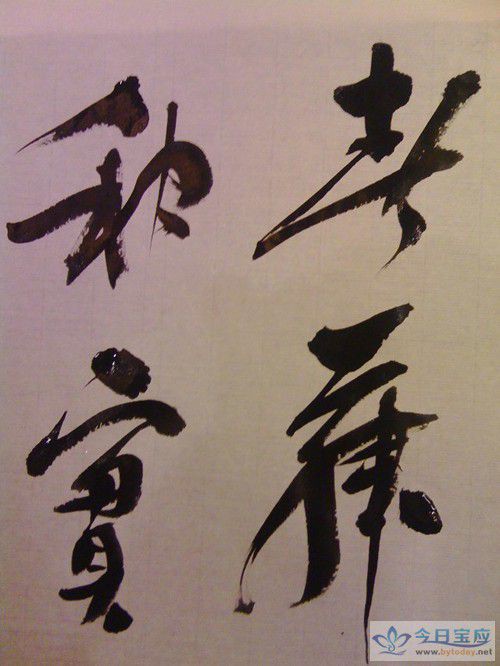 春華
秋實
今日宝应
www.bytoday.net